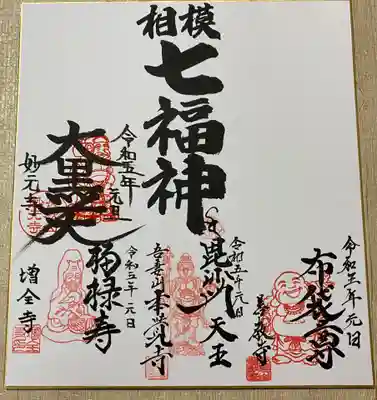 相模
七福神
令和五年 元日
布袋尊
令和五年元日
毘沙天王
吾妻山
令和五年元日
福禄寿
増全寺
令和五年 元日
大黒天
妙元寺